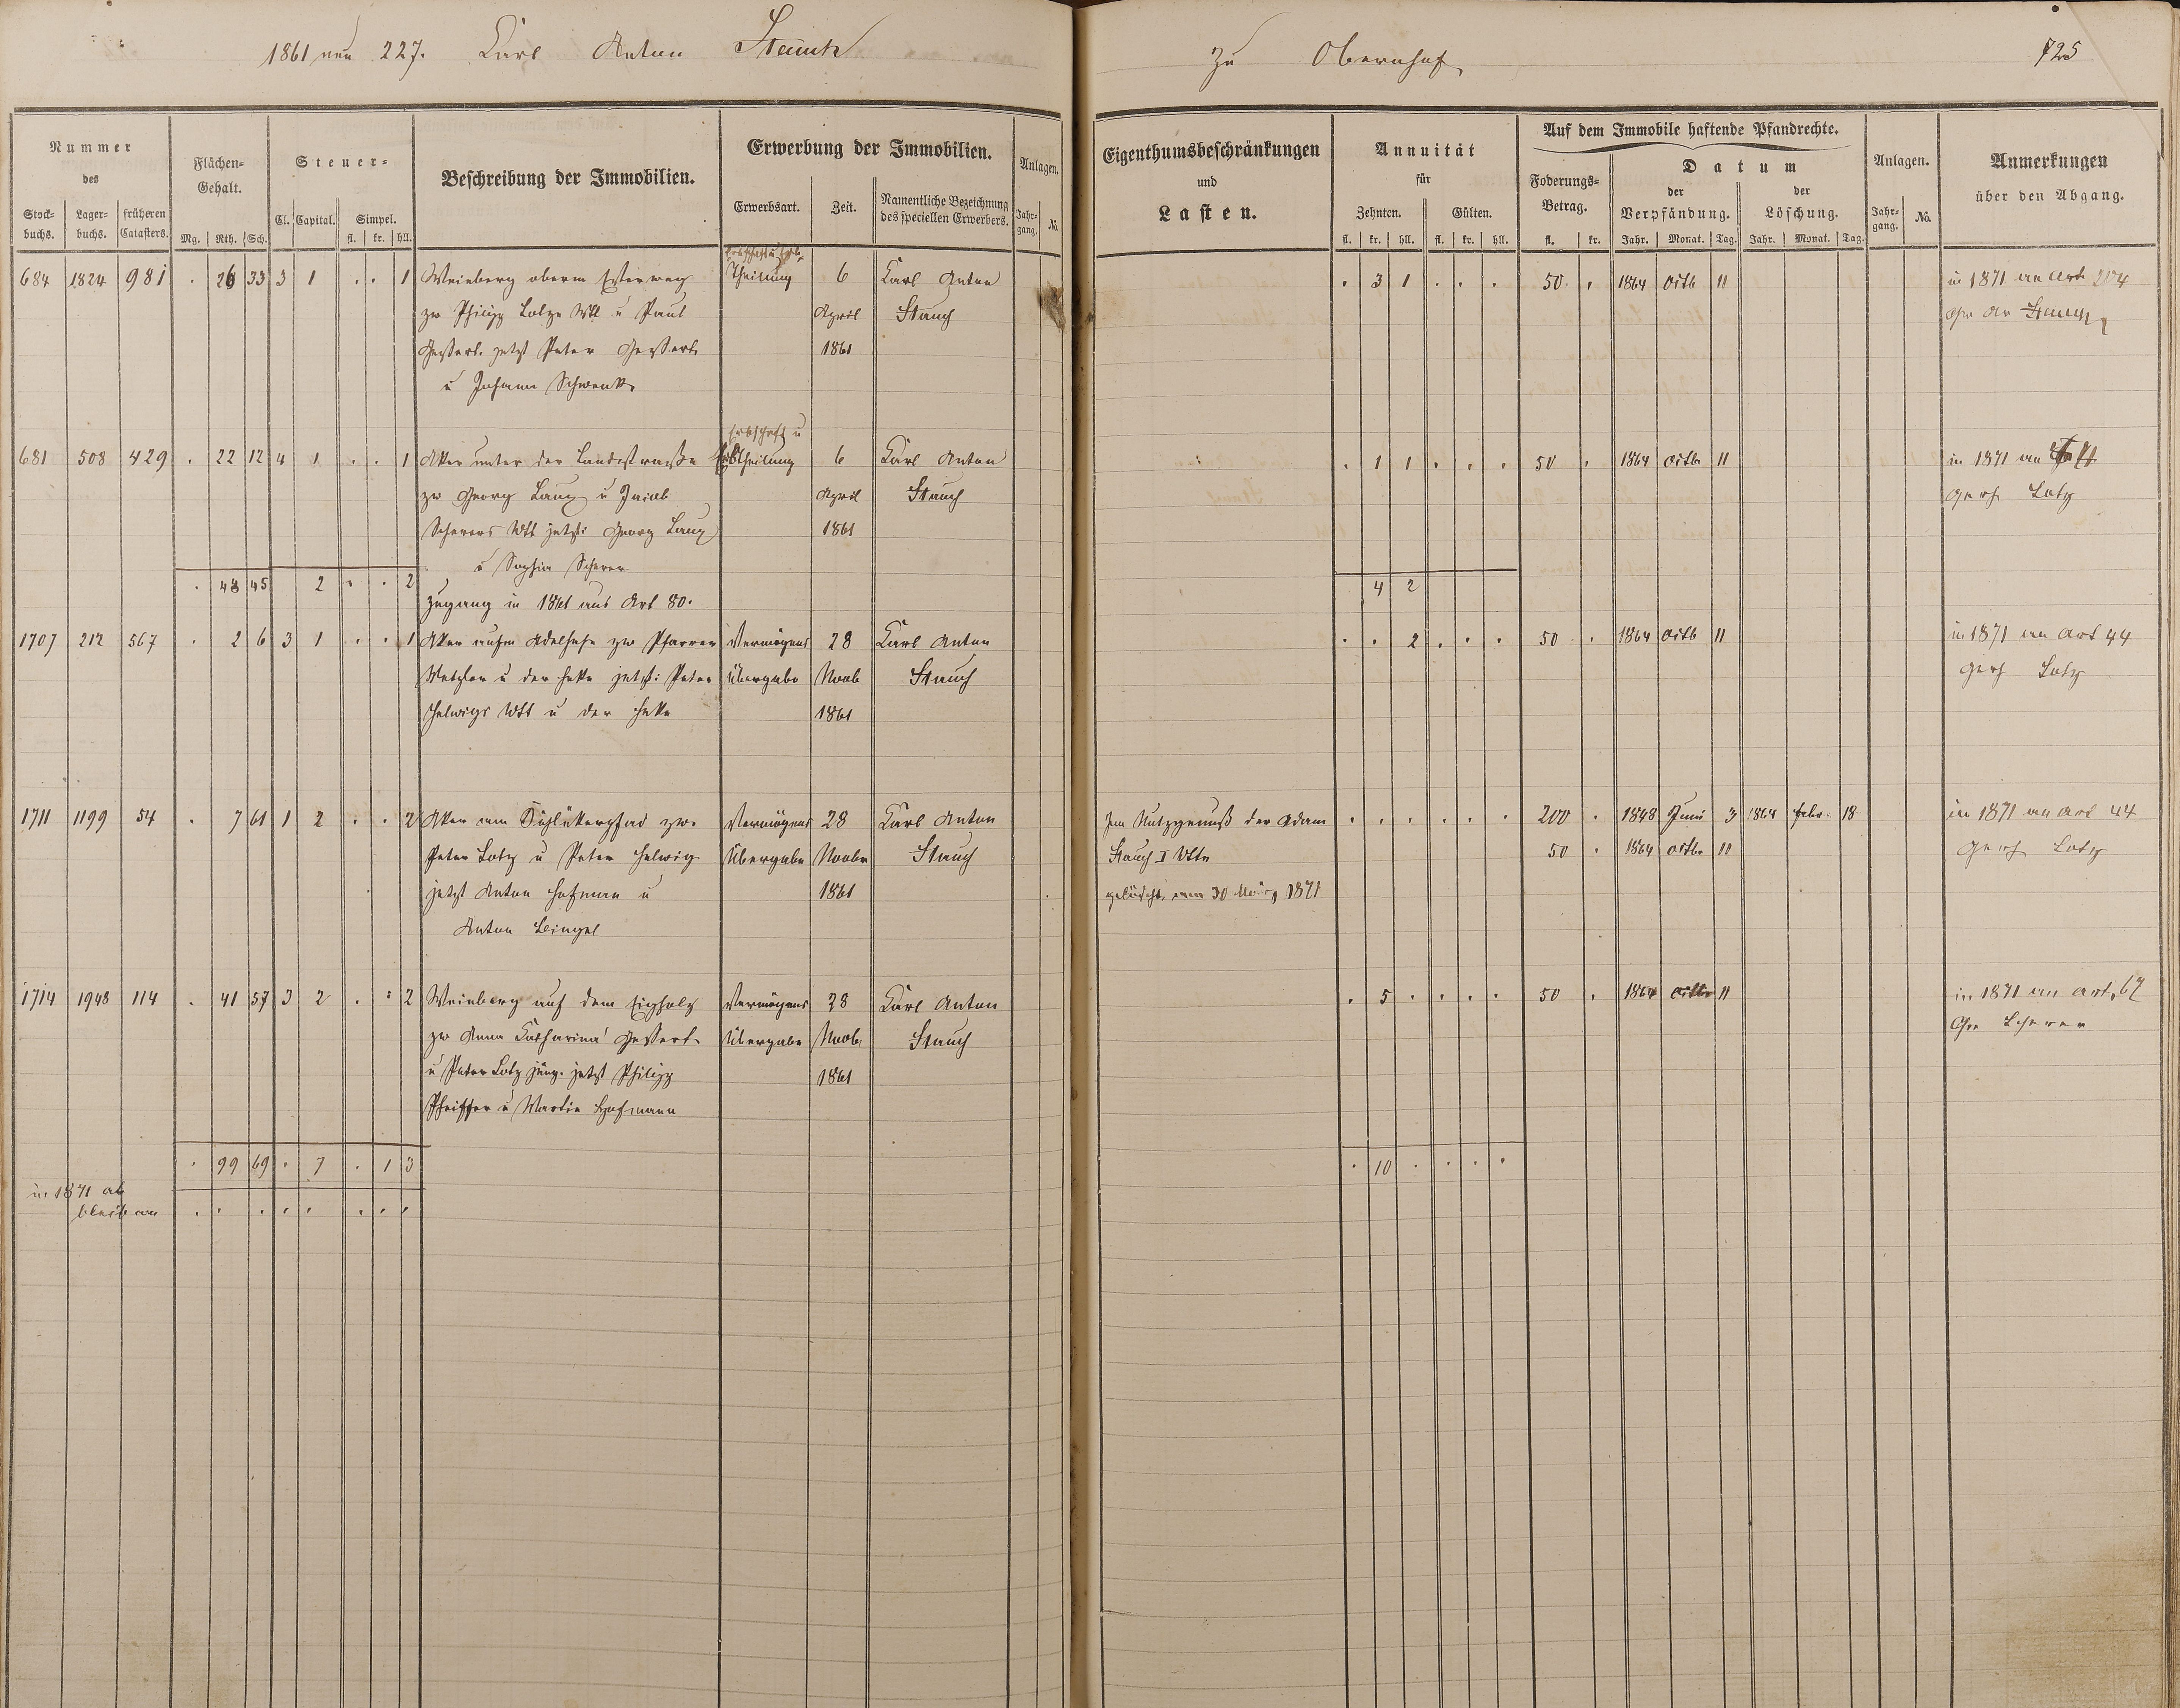 1861 neu 227. Karl Anton Stauch
zu Obernhof
725
Nummer
des
Stock-
buchs.
Lager-
buchs.
früheren
Catasters.
Flächen-
Gehalt.
Mg. Rth. Sch.
Steuer-
Cl. Capital. Simpel.
fl. kr. hll.
Beschreibung der Immobilien.
Erwerbung der Immobilien.
Erwerbsart. Zeit.
Namentliche Bezeichnung
des speciellen Erwerbers.
Anlagen.
Jahr-
gang. No
Eigenthumsbeschränkungen
und
Lasten.
Annuität
für
Zehnten. Gülten.
fl. kr. hll. fl. kr. hll.
Auf dem Immobile haftende Pfandrechte.
Foderungs-
Betrag.
fl. kr.
Datum
der
Verpfändung.
der
Löschung.
Jahr. Monat. Tag. Jahr. Monat. Tag.
Anlagen.
Jahr-
gang. No.
Anmerkungen
über den Abgang.
684 1824 981 . 26 33 3 1 . . 1 Weinberg oberm Theilung 6 Karl Anton . 3 1 . . . 50 . 1864 Octb 11 in 1871 an Art 204
zw Philipp Lotz Wtt u Paul April Stauch Stauch
Gessert. jetzt Peter Gessert 1861
u Johann Schwenk
Erbschaft u
681 508 429 . 22 12 4 1 . . 1 Aker unter der Landstrasse Erbtheilung 6 Karl Anton . 1 1 . . . 50 . 1864 Octb 11 in 1871 an
zw Georg Laux u Jacob April Stauch Lotz
Scherers Wtt jetzt: Georg Laux 1861
u Sophia Scherer
. 48 45 2 . . 2 4 2
Zugang in 1861 aus Art 80.
1707 212 567 . 2 6 3 1 . . 1 Aker zw Pfarrer Vermögens 28 Karl Anton . . 2 . . . 50 . 1864 Octb 11 in 1871 an Art 44
Metzler u der Heke jetzt: Peter übergabe Novb Stauch Lotz
Helwigs Wtt u der Heke 1861
1711 1199 54 . 7 61 1 2 . . 2 Aker am zw. Vermögens 28 Karl Anton Im Nutzgenuß der Adam . . . . . . 200 . 1848 Juni 3 1864 Febr. 18 in 1871 an Art 44
Peter Lotz u Peter Helwig Übergabe Novbr Stauch Stauch I Wtt 50 . 1864 Octbr 11 Lotz
jetzt Anton Hofman u 1861 gelöscht am 30 März 1871
Anton
1714 1948 114 . 41 57 3 2 . . 2 Weinberg auf dem Vermögens 28 Karl Anton . 5 . . . . 50 . 1864 Octbr 11 in 1871 an Art. 67
zw Anna Catharina Gessert Übergabe Novb. Stauch Scherer
u Peter Lotz jung. jetzt Philipp 1861
Pfeiffer u Martin Hofmann
. 99 69 . 7 . 1 3 . 10 . . . .
in 1871 ab
bleiben . . . . . . . .